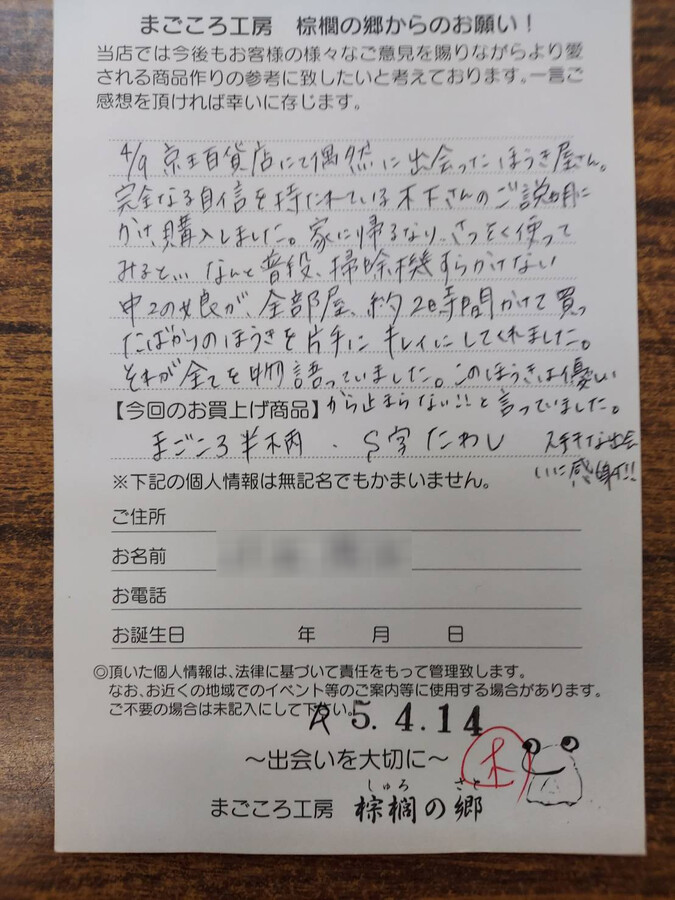 まごころ工房 棕櫚の郷からのお願い！
当店では今後もお客様の様々なご意見を賜りながらより愛
される商品作りの参考に致したいと考えております。一言ご
感想を頂ければ幸いに存じます。
4/9 京王百貨店にて偶然に出会ったほうき屋さん。
完全なる自信を持たれている木下さんのご説明に
かけ、購入しました。家に帰るなり、さっそく使って
みると… なんと普段、掃除機すらかけない
中2の娘が、全部屋、約2時間かけて買っ
たばかりのほうきを片手にキレイにしてくれました。
それが全てを物語っていました。このほうきは優しい
【今回のお買上げ商品】から止まらない!!と言っていました。
まごころ半柄 、S字たわし ステキな出会
いに感謝!!
※下記の個人情報は無記名でもかまいません。
ご住所
お名前
お電話
お誕生日 年 月 日
◎頂いた個人情報は、法律に基づいて責任をもって管理致します。
なお、お近くの地域でのイベント等のご案内等に使用する場合があります。
ご不要の場合は未記入にして下さい。
R5.4.14
～出会いを大切に～
木
しゅろ さと
まごころ工房 棕櫚の郷